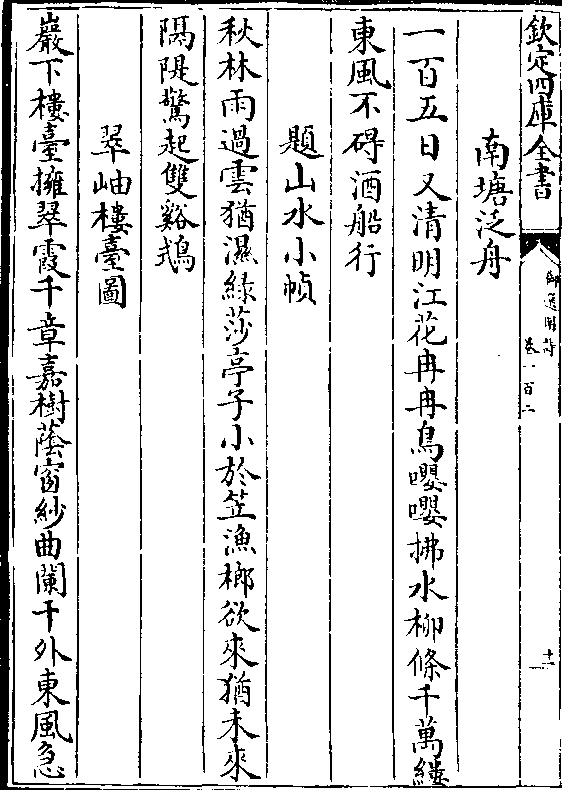 欽定四庫全書
御選明詩
卷一百二
十一
南塘泛舟
一百五日又清明江花冉冉鳥嚶嚶拂水柳條千萬縷
東風不碍酒船行
題山水小幀
秋林雨過雲猶濕綠莎亭子小於笠漁榔欲來猶未來
隔隄驚起雙谿鵡
翠岫樓臺圖
巖下樓臺擁翠霞千章嘉樹蔭窗紗曲闌干外東風急